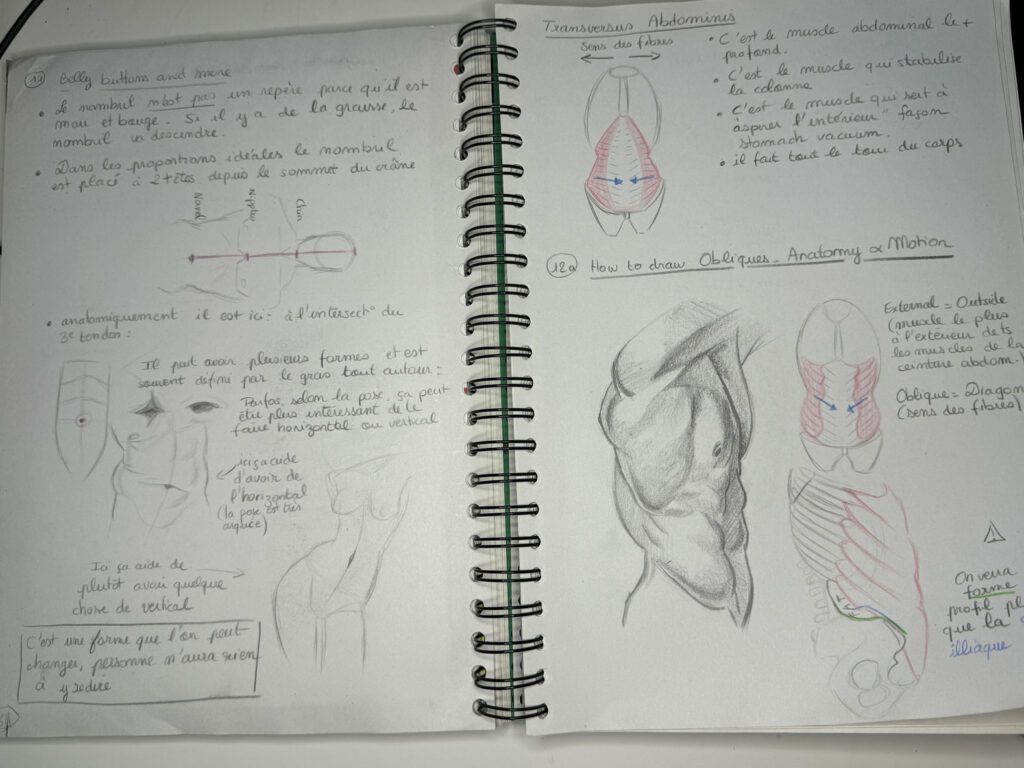 11 Belly buttons and more
• Le nombril n'est pas un repère parce qu'il est
mou et bouge. Si il y a de la graisse, le
nombril va descendre.
• Dans les proportions idéales le nombril
est placé à 2 têtes depuis le sommet du crâne
Navel
Nipple
Chin
• anatomiquement il est ici : à l'intersect° du
3e tendon :
Il peut avoir plusieurs formes et est
souvent défini par le gras tout autour :
Parfois, selon la pose, ça peut
être plus intéressant de le
faire horizontal ou vertical
ici ça aide
d'avoir de
l'horizontal
(la pose est très
arquée)
Ici ça aide de
plutôt avoir quelque
chose de vertical
C'est une forme que l'on peut
changer, personne n'aura rien
à y redire
Transversus Abdominis
Sens des fibres
• C'est le muscle abdominal le +
profond.
• C'est le muscle qui stabilise
la colonne
• C'est le muscle qui sert à
"aspirer l'intérieur" façon
stomach vacuum.
• il fait tout le tour du corps
12a How to draw Obliques - Anatomy & Motion
External = Outside
(muscle le plus
à l'extérieur de ts
les muscles de la
ceinture abdom.)
Oblique = Diagon
(sens des fibres)
On verra
forme
profil pl
que la
illiaque